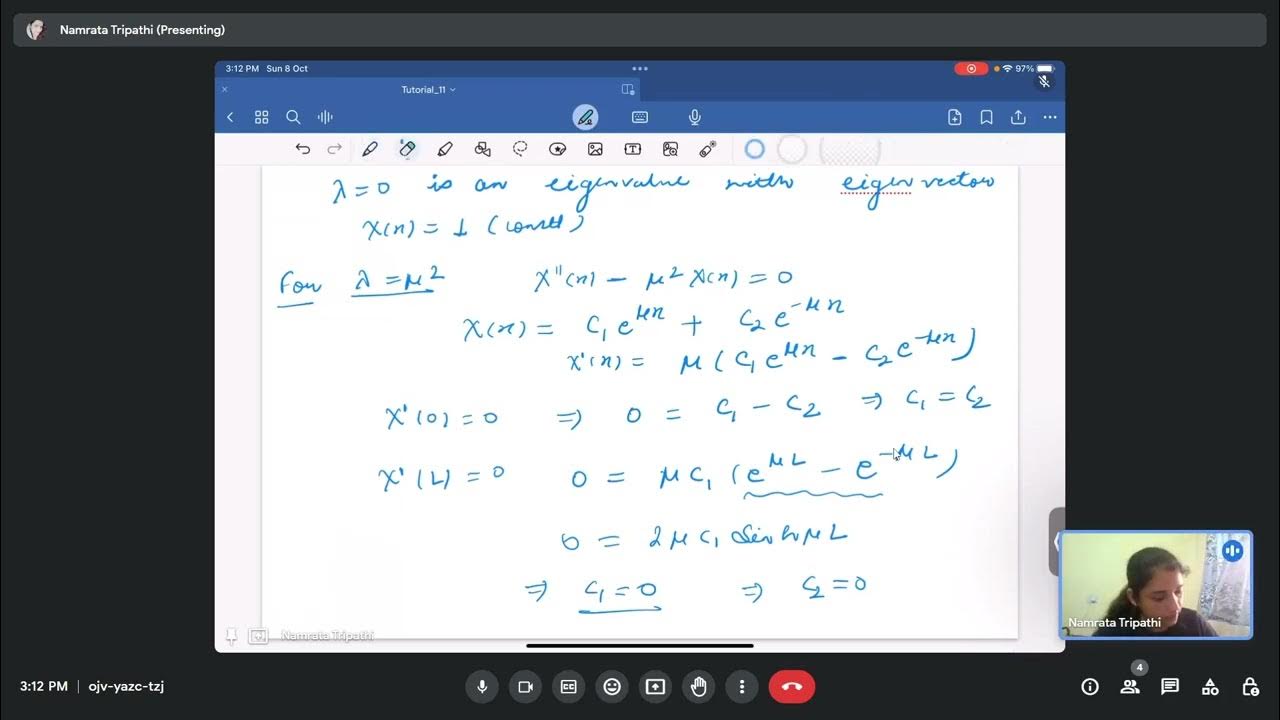 Namrata Tripathi (Presenting)
3:12 PM Sun 8 Oct
97%
Tutorial_11
λ=0 is an eigenvalue with eigen vector
X(x) = 1 (const)
For λ = μ² X''(x) - μ² X(x) = 0
X(x) = C₁ e^{μx} + C₂ e^{-μx}
X'(x) = μ ( C₁ e^{μx} - C₂ e^{-μx} )
X'(0) = 0 ⇒ 0 = C₁ - C₂ ⇒ C₁ = C₂
X'(L) = 0 0 = μ C₁ ( e^{μL} - e^{-μL} )
0 = 2 μ C₁ Sinh μ L
⇒ C₁ = 0 ⇒ C₂ = 0
Namrata Tripathi
Namrata Tripathi
3:12 PM ojv-yazc-tzj
4